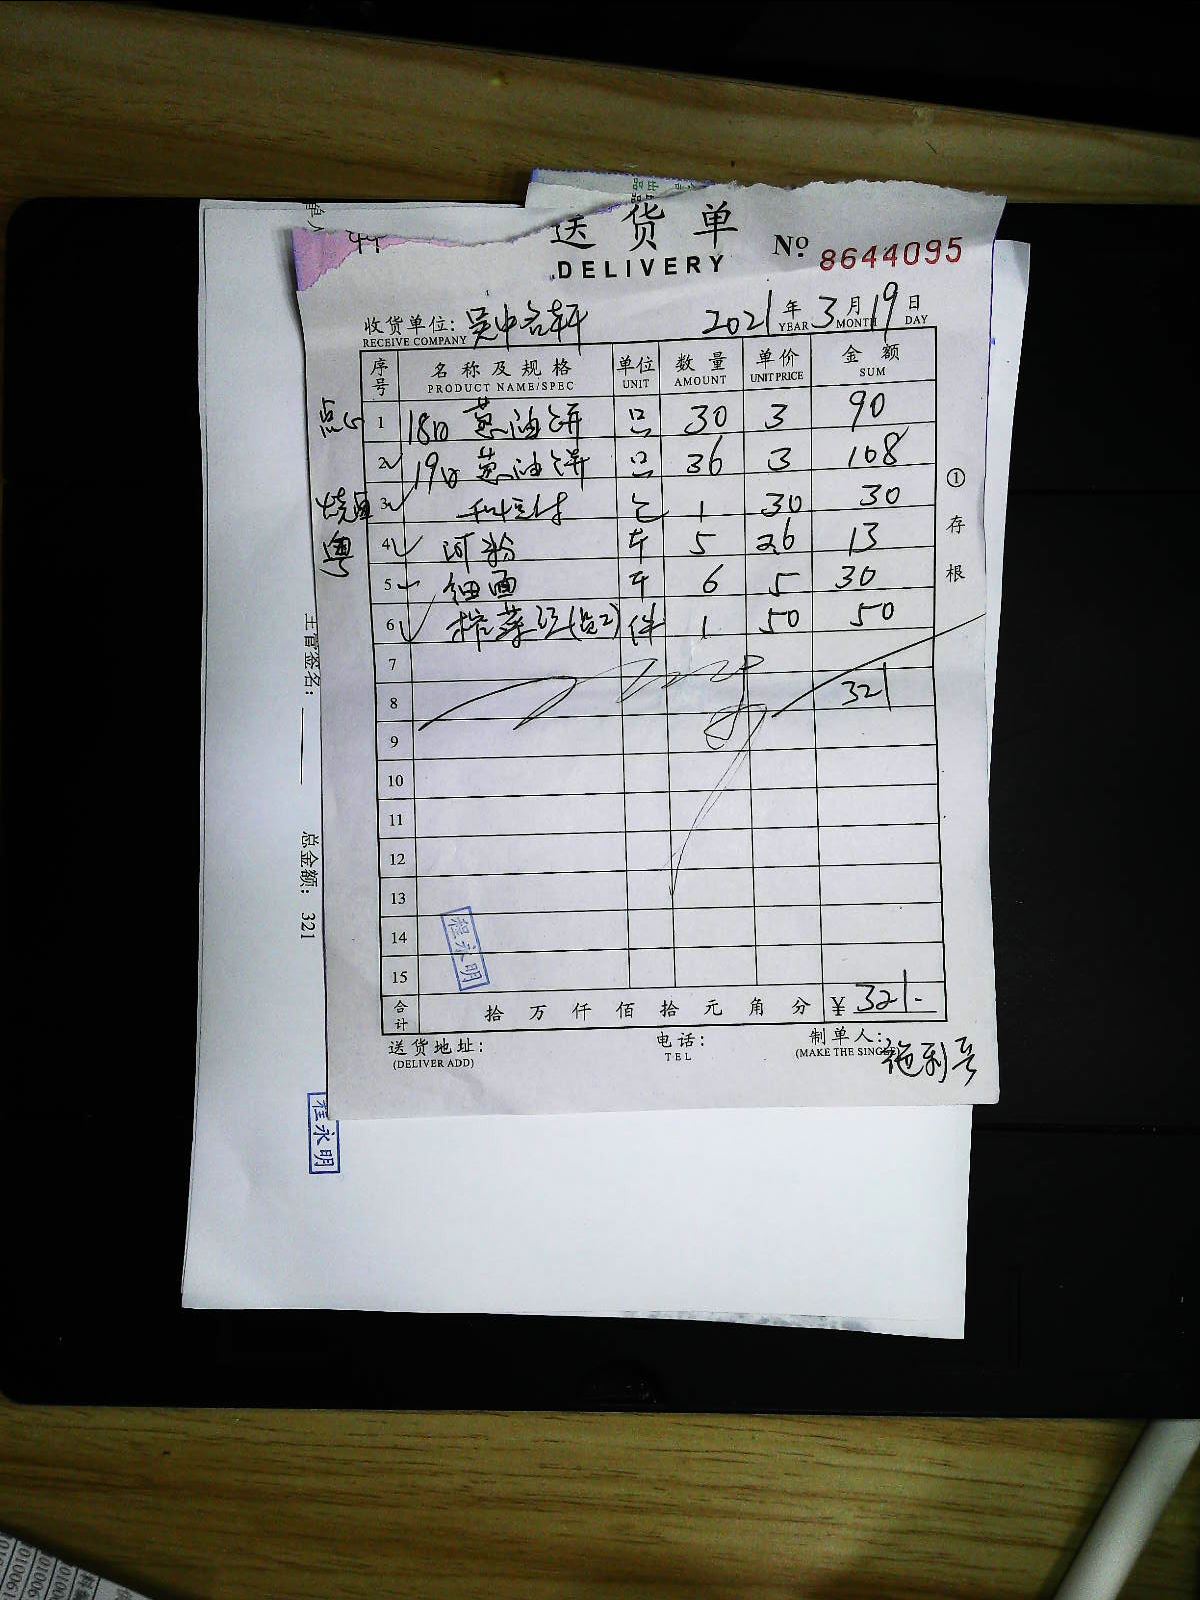 送货单
DELIVERY
No 8644095
收货单位: 吴中名轩
RECEIVE COMPANY
2021年3月19日
YEAR MONTH DAY
序号 名称及规格 单位 数量 单价 金额
PRODUCT NAME/SPEC UNIT AMOUNT UNIT PRICE SUM
点心 1 18日 葱油饼 只 30 3 90
2 19日 葱油饼 只 36 3 108
3 1 30 30
粤 4 河粉 斤 5 2.6 13
5 细面 斤 6 5 30
6 榨菜 件 1 50 50
7
8 321
9
10
11
12
13
14
15
合计 拾 万 仟 佰 拾 元 角 分 ¥ 321.-
送货地址:
(DELIVER ADD)
电话:
TEL
制单人:
(MAKE THE SINGLE)
①存根
程永明
主管签名:
总金额: 321
程永明